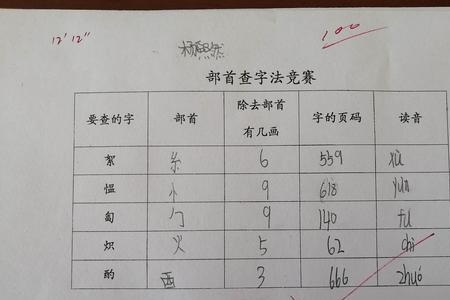 12'12"
100
部首查字法竞赛
要查的字 部首 除去部首有几画 字的页码 读音
絮 糸 6 559 xù
愠 忄 9 618 yùn
匐 勹 9 140 fú
炽 火 5 62 chì
酌 酉 3 666 zhuó